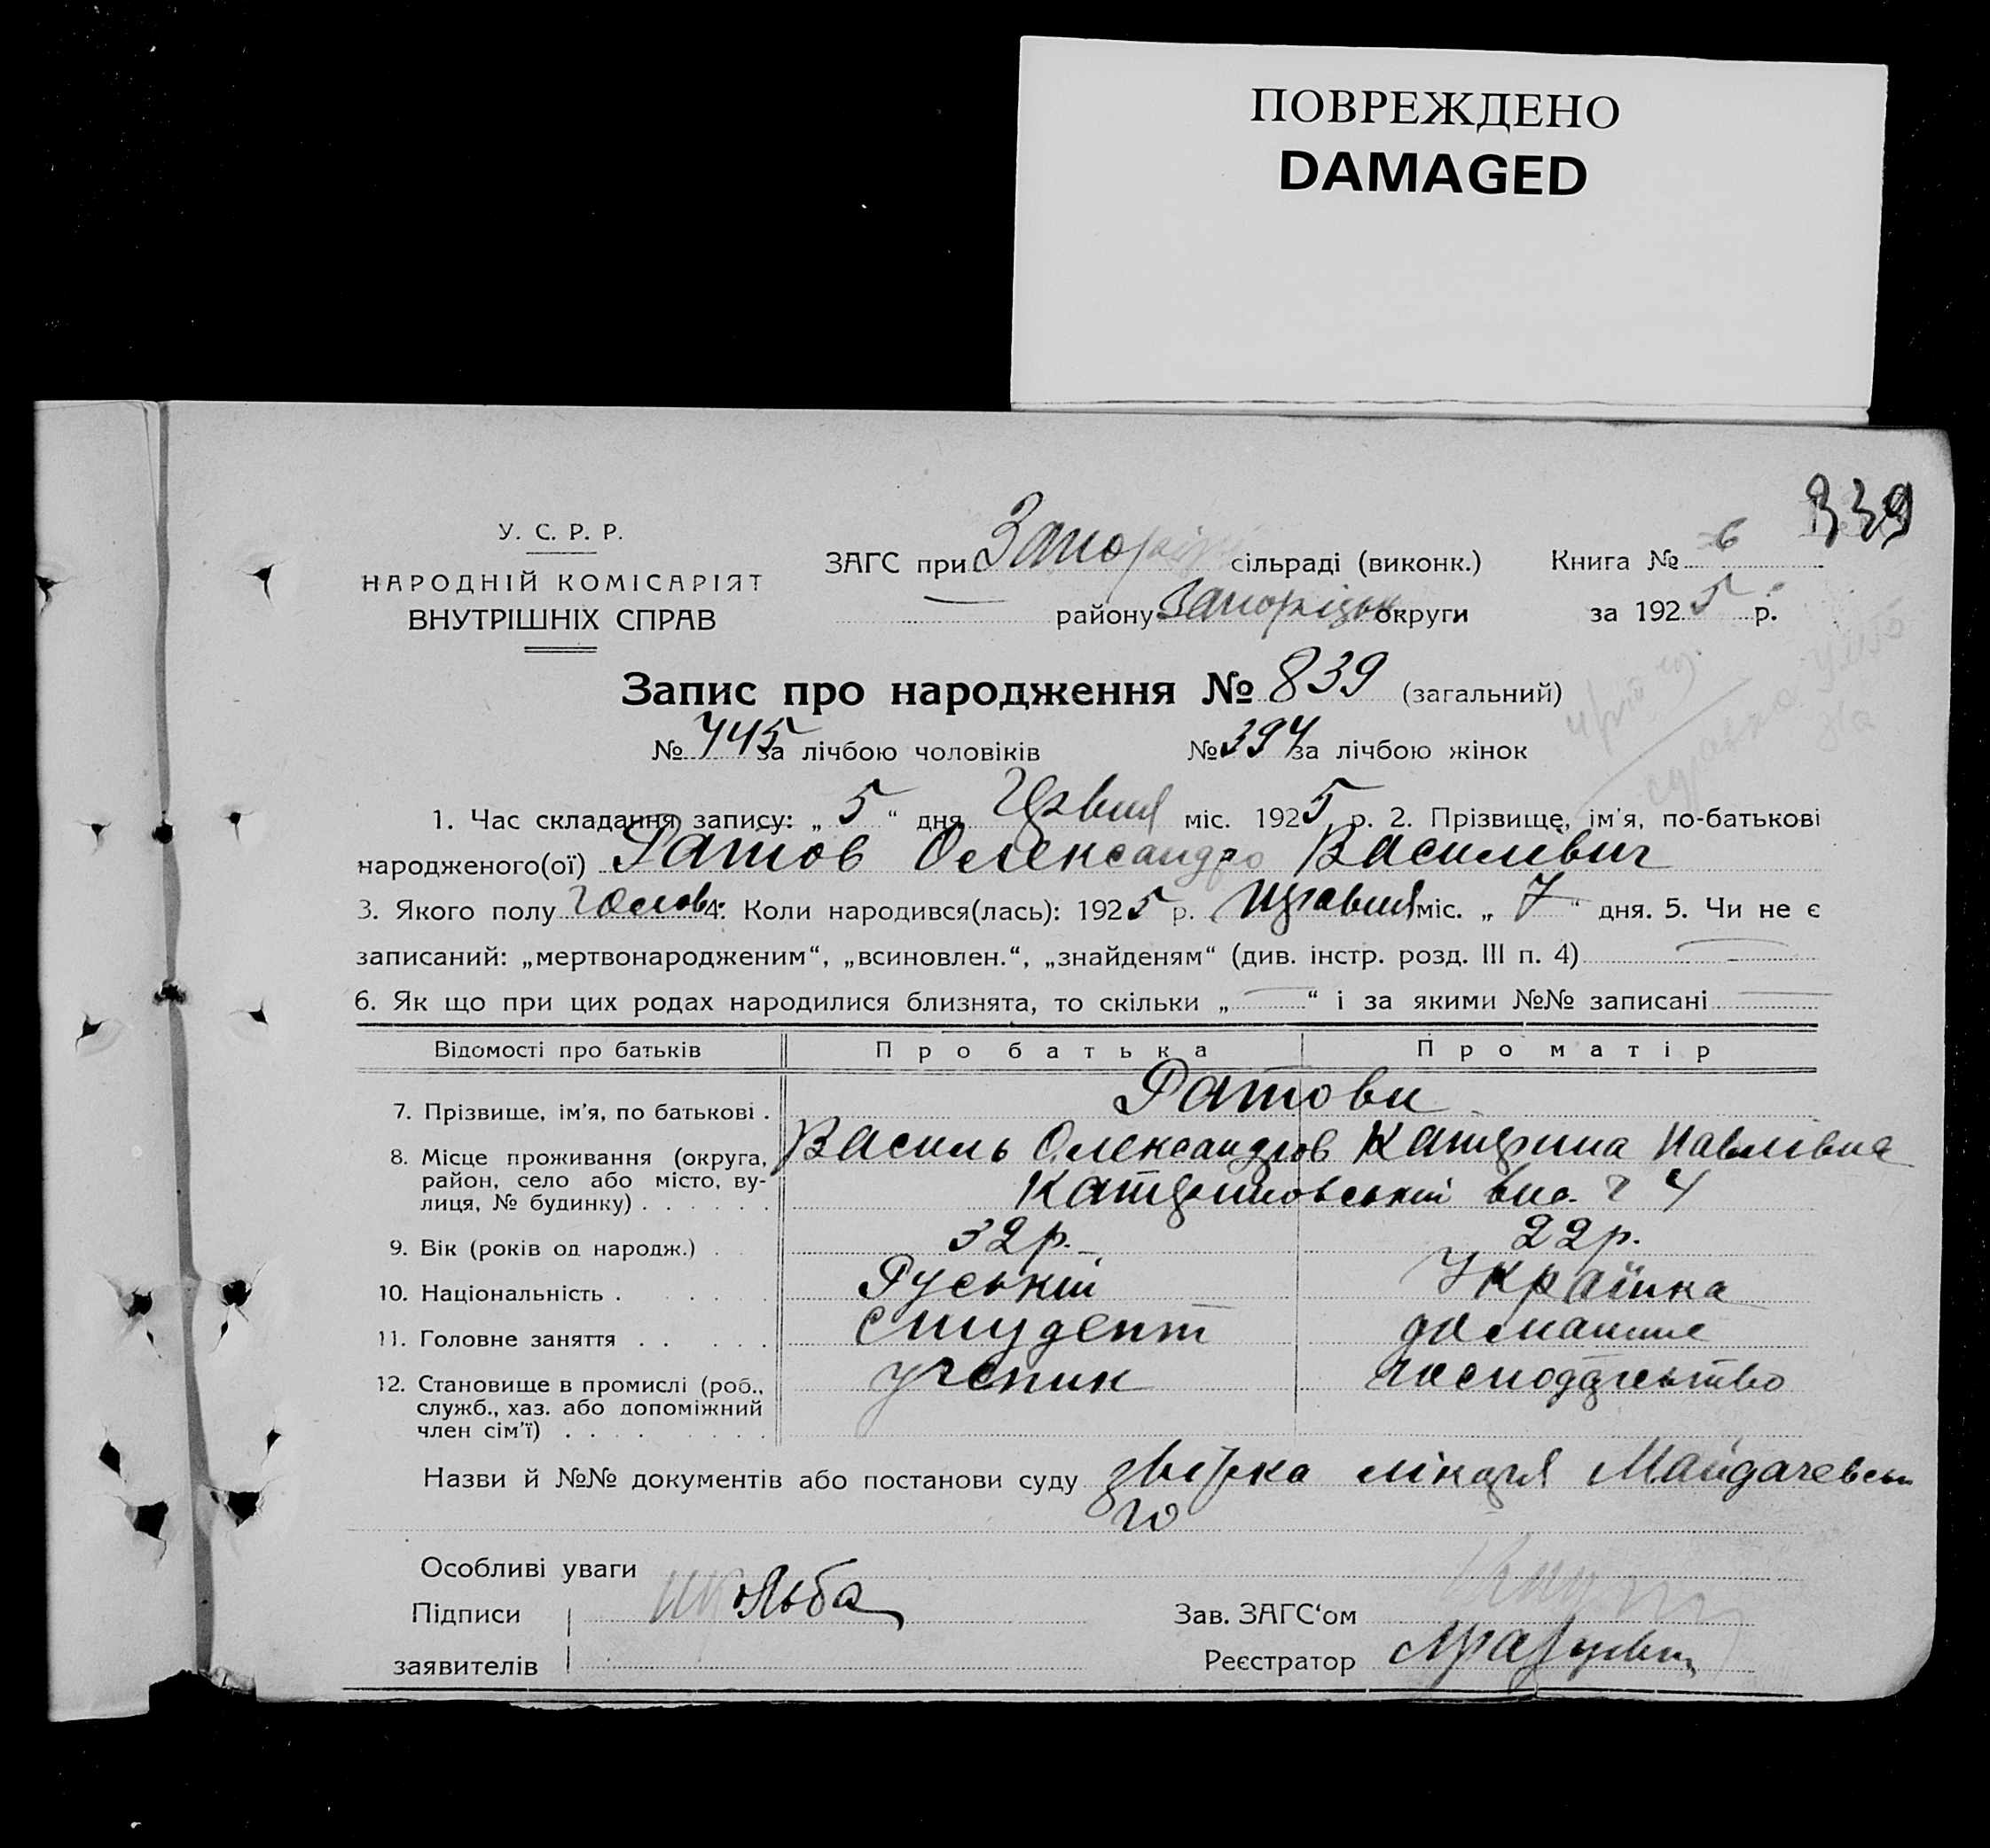 ПОВРЕЖДЕНО
DAMAGED
339
У. С. Р. Р.
НАРОДНІЙ КОМІСАРІЯТ
ВНУТРІШНІХ СПРАВ
ЗАГС при Запоріз сільраді (виконк.) Книга № 6
району Запорізьк округи за 1925 р.
Запис про народження № 839 (загальний)
№ 445 за лічбою чоловіків № 394 за лічбою жінок
1. Час складання запису: „ 5 “ дня Червня міс. 1925 р. 2. Прізвище, ім'я, по-батькові
народженого(ої) Ратов Олександро Василівич
3. Якого полу Чолов. 4. Коли народився(лась): 1925 р. Травня міс. „ 7 “ дня. 5. Чи не є
записаний: „мертвонародженим“, „всиновлен.“, „знайденям“ (див. інстр. розд. III п. 4)
6. Як що при цих родах народилися близнята, то скільки „ — “ і за якими №№ записані —
Відомості про батьків Про батька Про матір
7. Прізвище, ім'я, по батькові . Ратови
Василь Олександров Катерина Павлівна
8. Місце проживання (округа, район, село або місто, вулиця, № будинку) . . . . . . Катериновський вис. ч 4
9. Вік (років од народж.) . 32 р. 22 р.
10. Національність . Руській Українка
11. Головне заняття . . студент домашнє
12. Становище в промислі (роб., служб., хаз. або допоміжний член сім'ї) . . . . ученик господарство
Назви й №№ документів або постанови суду звірка лікаря Майдачевсько
го
Особливі уваги
Підписи Зав. ЗАГС‘ом
заявителів Реєстратор